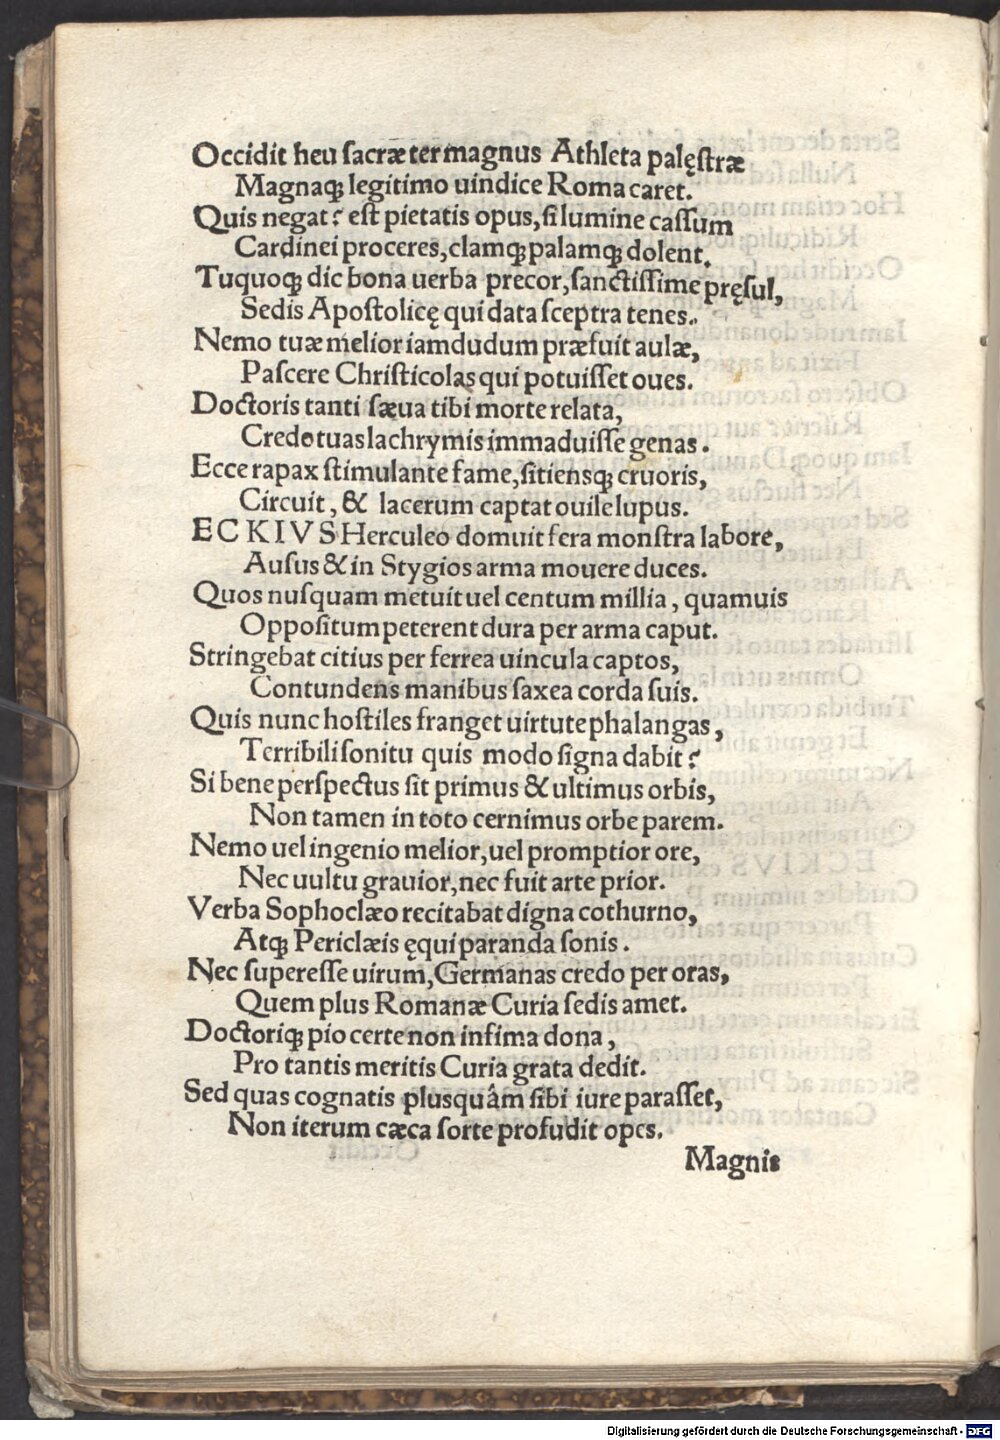 Occidit heu ſacræ ter magnus Athleta palęſtræ
Magnaqꝫ legitimo uindice Roma caret.
Quis negat? eſt pietatis opus, ſi lumine caſſum
Cardinei proceres, clamqꝫ palamqꝫ dolent.
Tuquoqꝫ dic bona uerba precor, ſanctiſſime pręſul,
Sedis Apoſtolicę qui data ſceptra tenes.
Nemo tuæ melior iamdudum præfuit aulæ,
Paſcere Chriſticolas qui potuiſſet oues.
Doctoris tanti ſæua tibi morte relata,
Credo tuas lachrymis immaduiſſe genas.
Ecce rapax ſtimulante fame, ſitiensqꝫ cruoris,
Circuit, & lacerum captat ouile lupus.
ECKIVS Herculeo domuit fera monſtra labore,
Auſus & in Stygios arma mouere duces.
Quos nuſquam metuit uel centum millia, quamuis
Oppoſitum peterent dura per arma caput.
Stringebat citius per ferrea uincula captos,
Contundens manibus ſaxea corda ſuis.
Quis nunc hoſtiles franget uirtute phalangas,
Terribili ſonitu quis modo ſigna dabit?
Si bene perſpectus ſit primus & ultimus orbis,
Non tamen in toto cernimus orbe parem.
Nemo uel ingenio melior, uel promptior ore,
Nec uultu grauior, nec fuit arte prior.
Verba Sophoclæo recitabat digna cothurno,
Atqꝫ Periclæis ęquiparanda ſonis.
Nec ſupereſſe uirum, Germanas credo per oras,
Quem plus Romanæ Curia ſedis amet.
Doctoriqꝫ pio certe non infima dona,
Pro tantis meritis Curia grata dedit.
Sed quas cognatis plusquâm ſibi iure paraſſet,
Non iterum cæca ſorte profudit opes.
Magnis
Digitalisierung gefördert durch die Deutsche Forschungsgemeinschaft - DFG